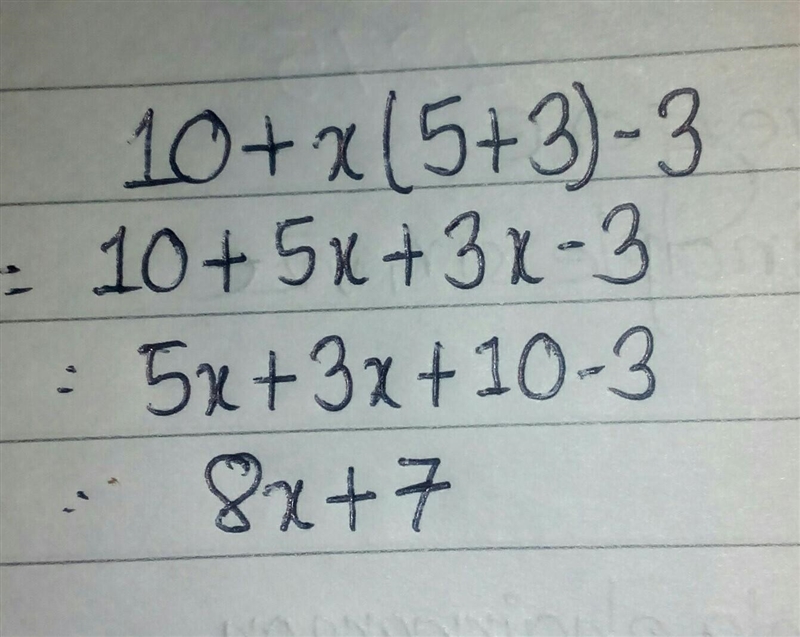 10+x(5+3)-3
= 10+5x+3x-3
= 5x+3x+10-3
∴ 8x+7